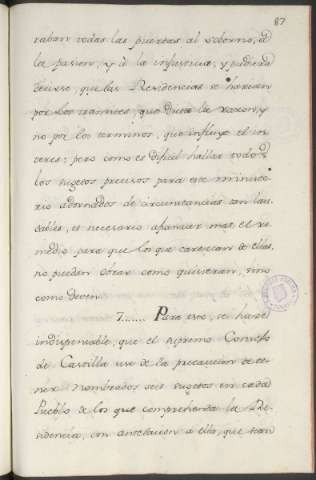 87
raban todas las puertas al soborno, a
la pasion, y à la injusticia, y pudiera
decirse, que las Residencias se hacian
por los tramites, que dicta la razon, y
no por los terminos, que influye el in
teres: pero como es dificil hallar todos
los sugetos precisos para este ministe
rio adornados de circunstancias tan lau
dables, es necesario afianzar mas el re
medio para que los que carezcan de ellas,
no puedan obrar como quisieran, sino
como deven.
7...... Para esto, se hace
indispensable, que el supremo Consejo
de Castilla use de la precaucion de te
ner nombrados seis sugetos en cada
Pueblo de los que comprehenda la Re
sidencia, con antelacion a ella, que sean